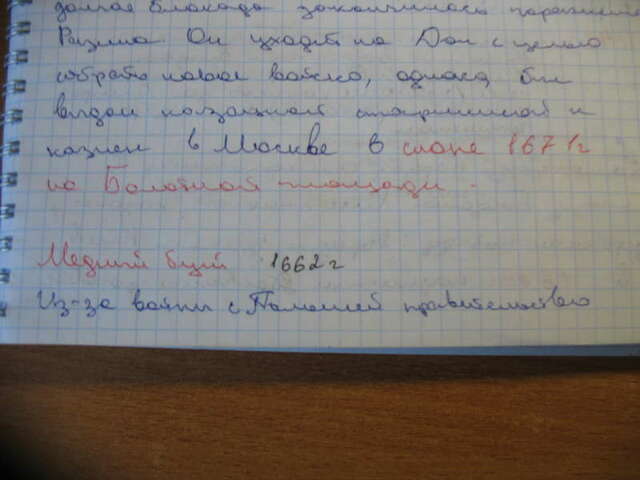 долгая блокада закончилась поражени
Разина. Он уходит на Дон с целью
собрать новое войско, однако, был
выдан казацкой старшиной и
казнен в Москве в июне 1671г
на Болотной площади.
Медный бунт 1662г
Из-за войны с Польшей правительство